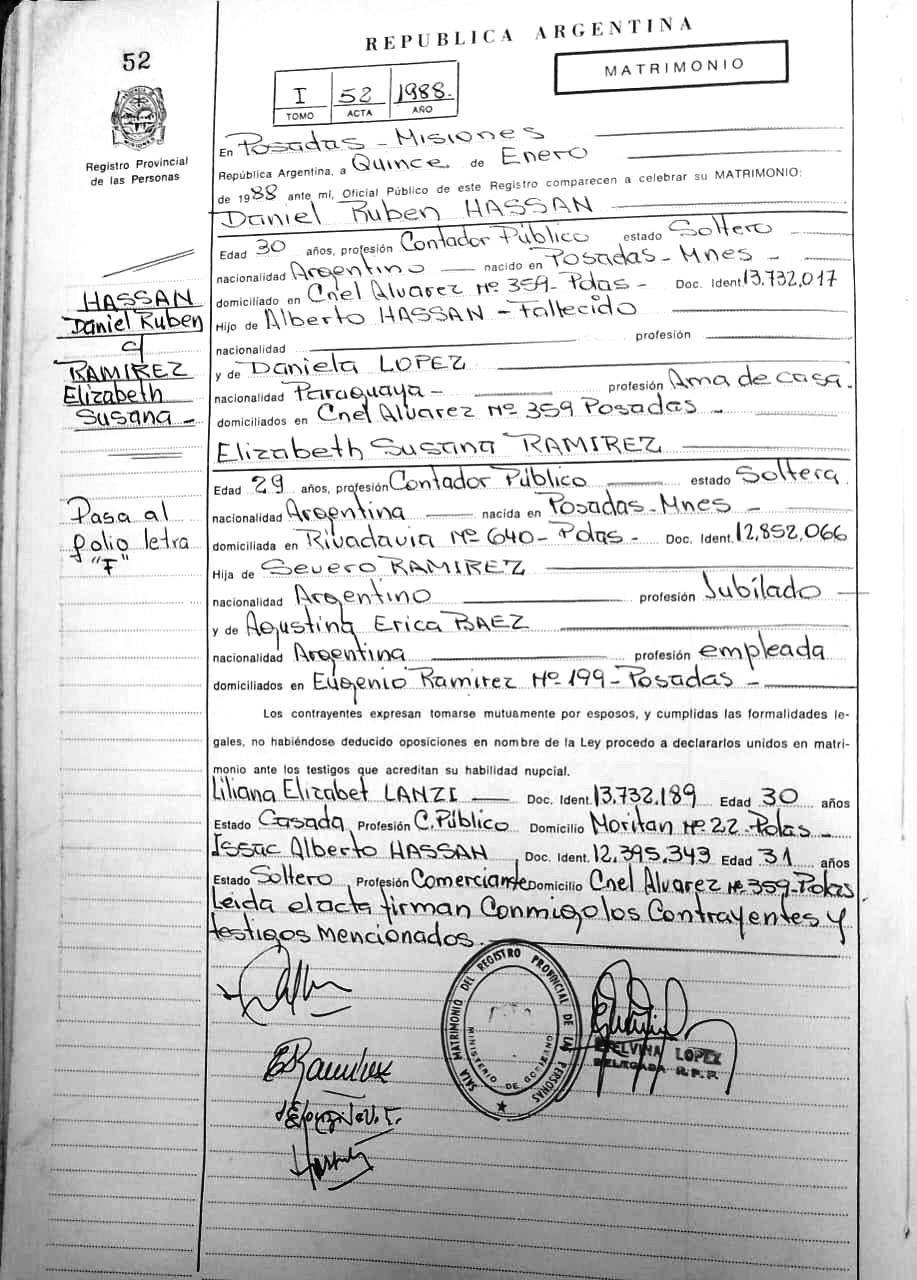 52
REPUBLICA ARGENTINA
MATRIMONIO
I 52 1988.
TOMO ACTA AÑO
Registro Provincial
de las Personas
En Posadas - Misiones
República Argentina, a Quince de Enero
de 1988 ante mí, Oficial Público de este Registro comparecen a celebrar su MATRIMONIO:
Daniel Ruben HASSAN
Edad 30 años, profesión Contador Público estado Soltero
nacionalidad Argentino nacido en Posadas - Mnes -
domiciliado en Cnel Alvarez Nº 359 - Pdas - Doc. Ident. 13.732.017
Hijo de Alberto HASSAN - Fallecido
nacionalidad profesión
y de Daniela LOPEZ
nacionalidad Paraguaya - profesión Ama de casa.
domiciliados en Cnel Alvarez Nº 359 Posadas -
HASSAN
Daniel Ruben
c/
RAMIREZ
Elizabeth
Susana -
Elizabeth Susana RAMIREZ
Edad 29 años, profesión Contador Público estado Soltera
nacionalidad Argentina nacida en Posadas - Mnes -
domiciliada en Rivadavia Nº 640 - Pdas - Doc. Ident. 12.852.066
Hija de Severo RAMIREZ
nacionalidad Argentino profesión Jubilado
y de Agustina Erica BAEZ
nacionalidad Argentina profesión empleada
domiciliados en Eugenio Ramirez Nº 199 - Posadas -
Pasa al
folio letra
"F"
Los contrayentes expresan tomarse mutuamente por esposos, y cumplidas las formalidades le-
gales, no habiéndose deducido oposiciones en nombre de la Ley procedo a declararlos unidos en matri-
monio ante los testigos que acreditan su habilidad nupcial.
Liliana Elizabet LANZI Doc. Ident. 13.732.189 Edad 30 años
Estado Casada Profesión C. Público Domicilio Moritan Nº 22 - Pdas -
Issac Alberto HASSAN Doc. Ident. 12.395.343 Edad 31 años
Estado Soltero Profesión Comerciante Domicilio Cnel Alvarez Nº 359 - Pdas
Leida el acta firman Conmigo los Contrayentes y
testigos mencionados.
SALA MATRIMONIO DEL REGISTRO PROVINCIAL DE LAS PERSONAS
MINISTERIO DE GOBIERNO
LOPEZ
DELEGADA R.P.P.
ERamirez